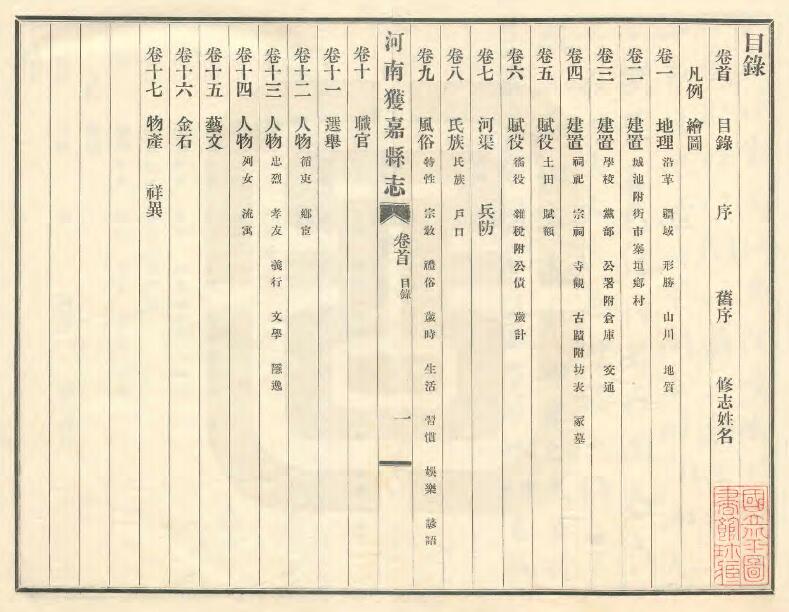 目錄
卷首 目錄 序 舊序 修志姓名
凡例 繪圖
卷一 地理 沿革 疆域 形勝 山川 地質
卷二 建置 城池附街市寨垣鄉村
卷三 建置 學校 黨部 公署附倉庫 交通
卷四 建置 祠祀 宗祠 寺觀 古蹟附坊表 冢墓
卷五 賦役 土田 賦額
卷六 賦役 徭役 雜稅附公債 歲計
卷七 河渠 兵防
卷八 氏族 氏族 戶口
卷九 風俗 特性 宗敎 禮俗 歲時 生活 習慣 娛樂 諺語
河南獲嘉縣志 卷首 目錄 一
卷十 職官
卷十一 選舉
卷十二 人物 循吏 鄉宦
卷十三 人物 忠烈 孝友 義行 文學 隱逸
卷十四 人物 列女 流寓
卷十五 藝文
卷十六 金石
卷十七 物產 祥異
國立平圖
書館珍藏